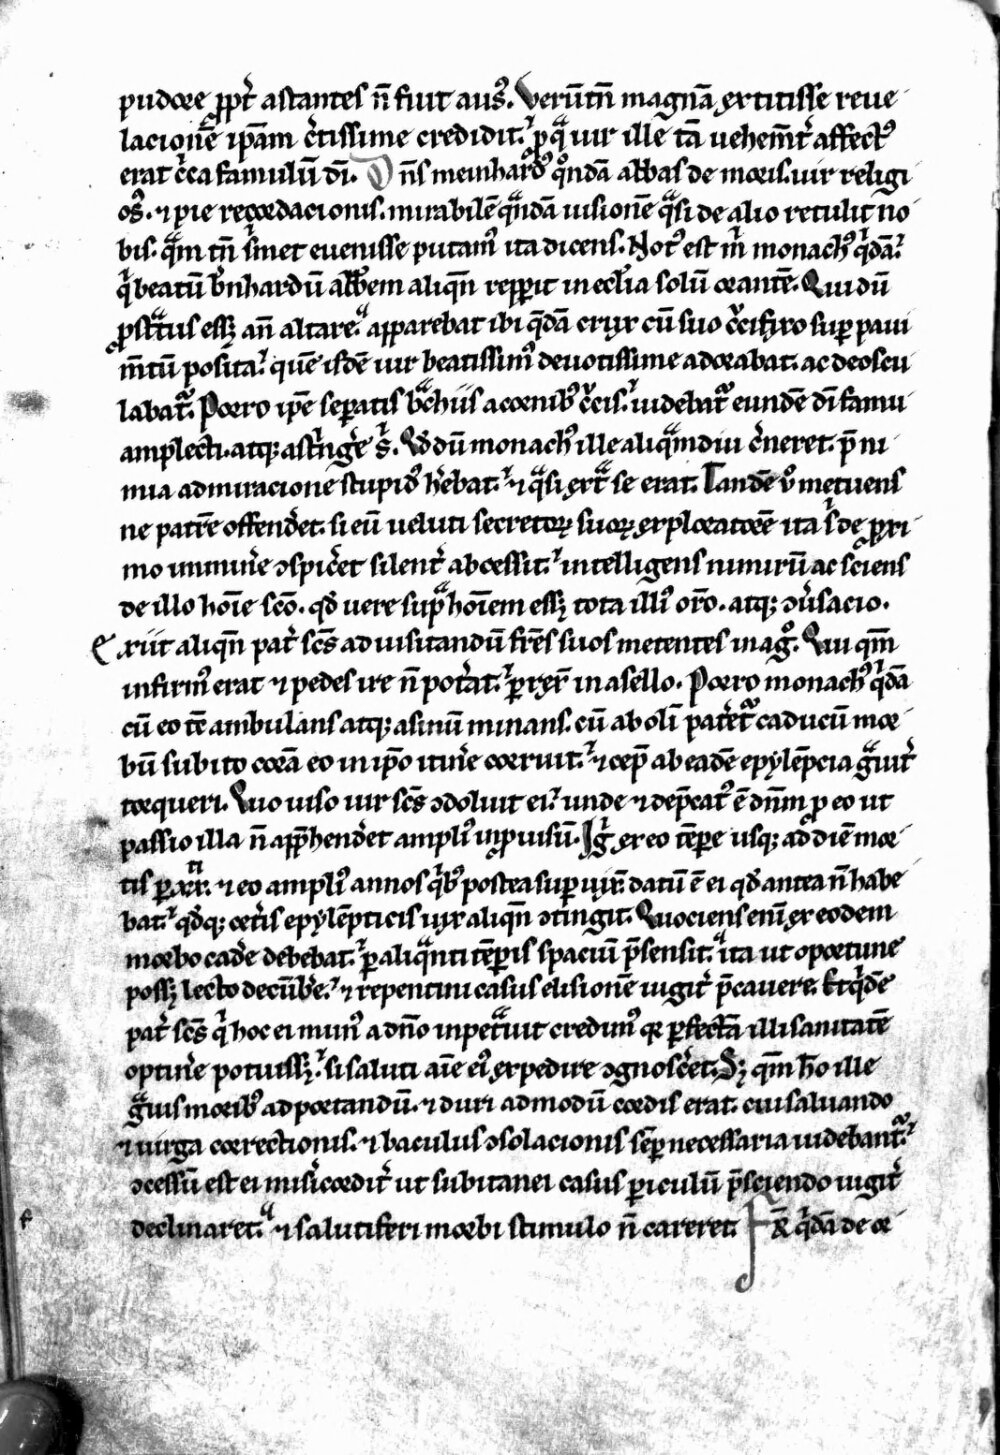 pudore ꝓpt᷑ astantes n̄ fuit ausꝰ. Verūtn̄ magnā extitisse reue
lacionē ip̄am c̓tissime credidit. ꝓ qͣ uir ille tā uehem̄t᷑ affectꝰ
erat c̓ca famulū dī. Dn̄s meinhardꝰ qͦndā abbas de moris. uir religi
osꝰ. ⁊ pie recordacionis. mirabilē qͣndā uisionē qͣsi de alio retulit no
bis. qͣm tn̄ sͥmet euenisse putamꝰ ita dicens. Notꝰ est mͥ monachꝰ qͥdā.
qͥ beatū b̓nhardū abb̄em aliqn̄ repp̄it in eccl̓ia solū orantē. Qui dū
ꝓstͣtus essꝫ an̄ altare. apparebat ibi q̄dā crux cū suo c̓cifixo suꝑ paui
m̄tū posita. quē isdē uir beatissimꝰ deuotissime adorabat. ac deoscu
labatᷣ. Porro ip̄e seꝑatis bͣchiis a cornibꝰ c̓cis. uidebatᷣ eundē dī famu
amplecti. atqꝫ astͥnge᷑ sͥ. Qd̓ dū monachꝰ ille aliqͣmdiu c̓neret. p̄ ni
mia admiracione stupidꝰ h̓ebat. ⁊ qͣsi extͣ se erat. Tandē uͦ metuens
ne patrē offend̓et. si eū ueluti secretoꝝ suoꝝ exploratorē ita sͥ de ꝓxi
mo imminͤe ꝯspic̓et silent᷑ abcessit. intelligens nimirū ac sciens
de illo hoīe sc̄o. qd̓ uere supͣ hoīem essꝫ tota illiꝰ or̄o. atqꝫ ꝯu̓sacio.
Exiit aliqn̄ pat᷑ sc̄s ad uisitandū fr̄es suos metentes in agͦ. Qui qm̄
infirmꝰ erat ⁊ pedes ire n̄ pot̓at. ꝑrex̄ in asello. Porro monachꝰ qͥdā
cū eo tē ambulans atqꝫ asinū minans. cū ab olī patet᷑ caducū mor
bū subito corā eo in ip̄o itin̓e corruit. ⁊ cep̄ ab eadē epylēpcia gͣuit᷑
torqueri. Quo uiso uir sc̄s ꝯdoluit ei. unde ⁊ dep̄catꝰ ē dn̄m ꝓ eo ut
passio illa n̄ app̄hend̓et ampliꝰ inꝓuisū. Igͥ ex eo tēꝑe usqꝫ ad diē mor
tis ꝑ xx. ⁊ eo ampliꝰ annos qͥbꝰ postea suꝑuix̄. datū ē ei qd̓ antea n̄ habe
bat. qd̓qꝫ cet̓is epylēpticis uix aliqn̄ ꝯtingit. Quociens enī ex eodem
morbo cad̓e debebat. ꝑ aliqͣnti tēꝑis spaciū p̄sensit. ita ut oportune
possꝫ lecto decūb̓e. ⁊ repentini casus elisionē iugit᷑ p̄cauere. Et qͥdē
pat᷑ sc̄s qͥ hoc ei munꝰ a dn̄o inpetͣuit credimꝰ qꝛ ꝑfectā illi sanitatē
optin̓e potuissꝫ. si saluti aīe eiꝰ expedire ꝯgnosc̓et. Sꝫ qm̄ h̄o ille
gͣuis moribꝰ ad portandū. ⁊ duri admodū cordis erat. cui saluando
⁊ uirga correctionis. ⁊ baculus ꝯsolacionis semꝑ necessaria uidebant᷑.
ꝯcessū est ei mis̓icordit᷑ ut subitanei casus ꝑiculū p̄sciendo iugit᷑
declinaret. ⁊ salutiferi morbi stimulo n̄ careret. Fr̄ qͥdā de or